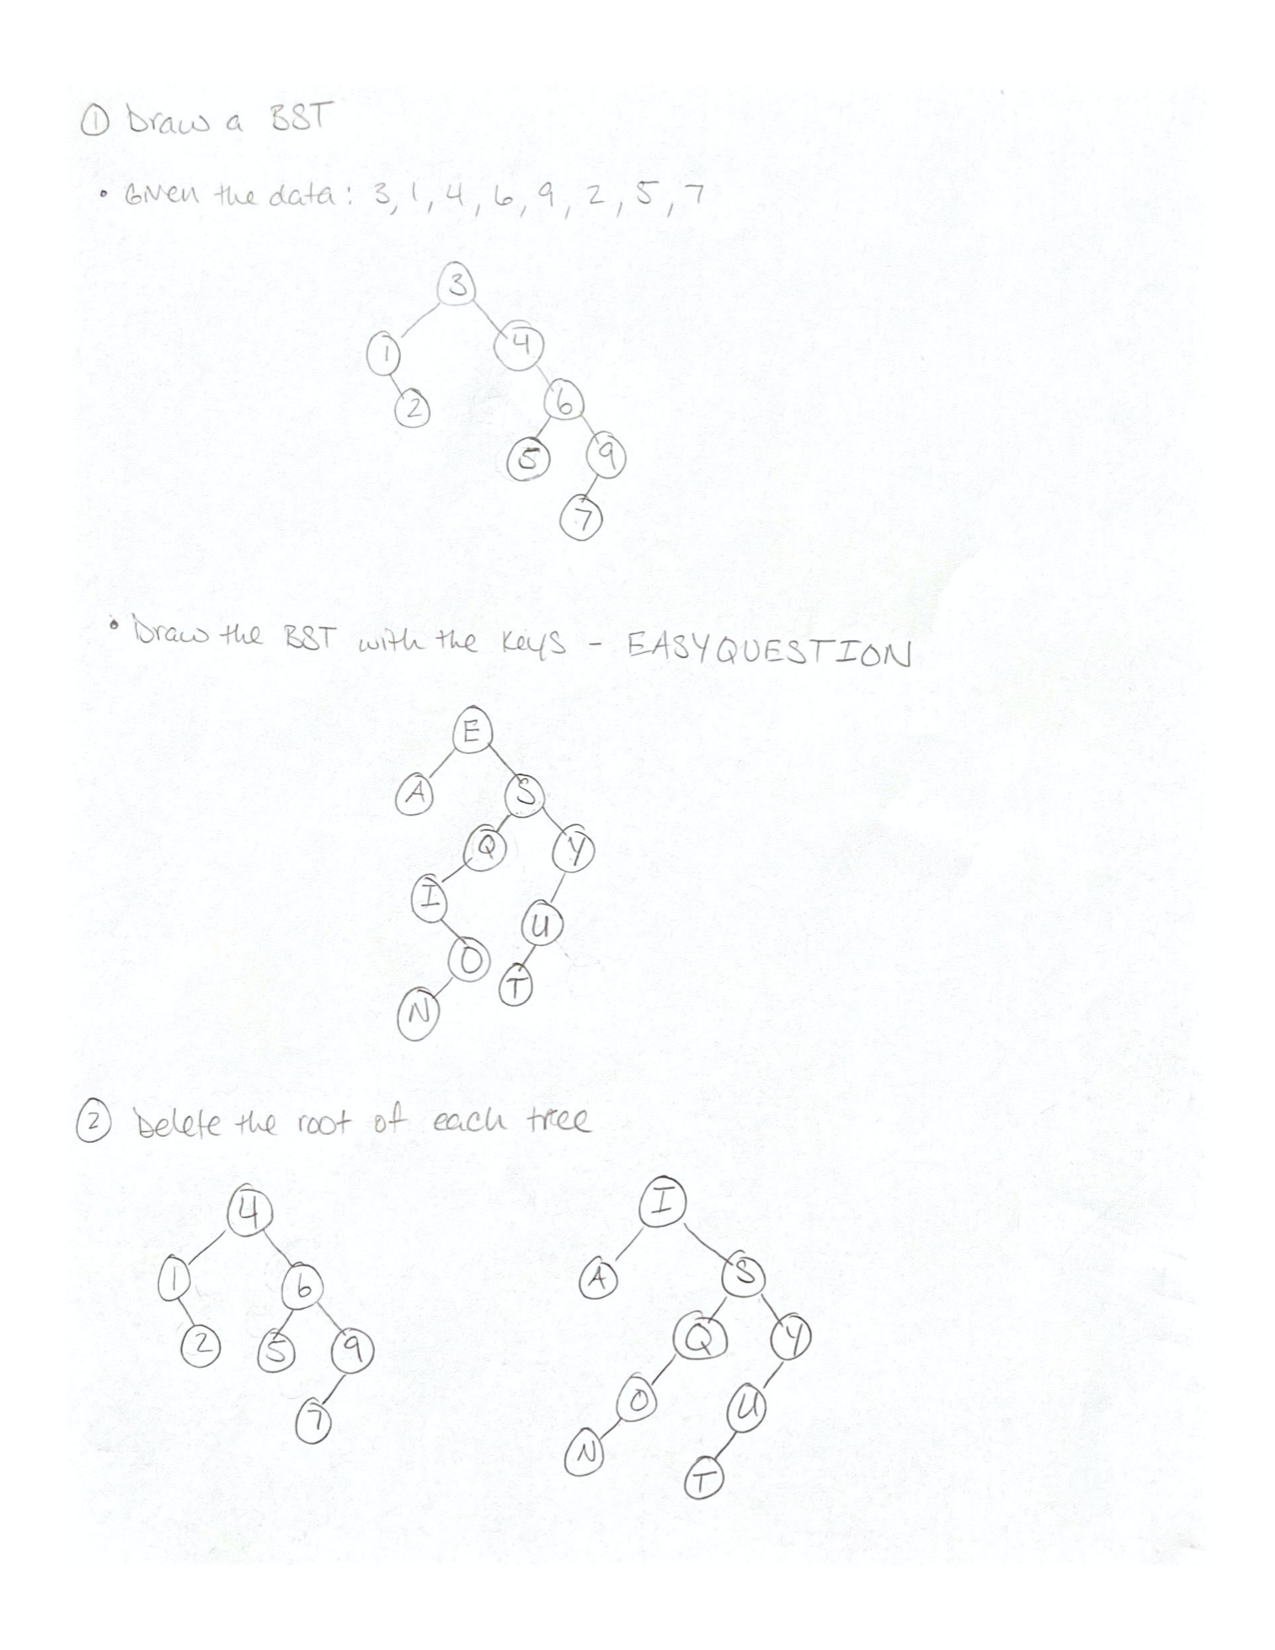 ① Draw a BST
• Given the data: 3, 1, 4, 6, 9, 2, 5, 7
3
1 4
2 6
5 9
7
• Draw the BST with the keys - EASYQUESTION
E
A S
Q Y
I U
O T
N
② Delete the root of each tree
4 I
1 6 A S
2 5 9 Q Y
7 O U
N T